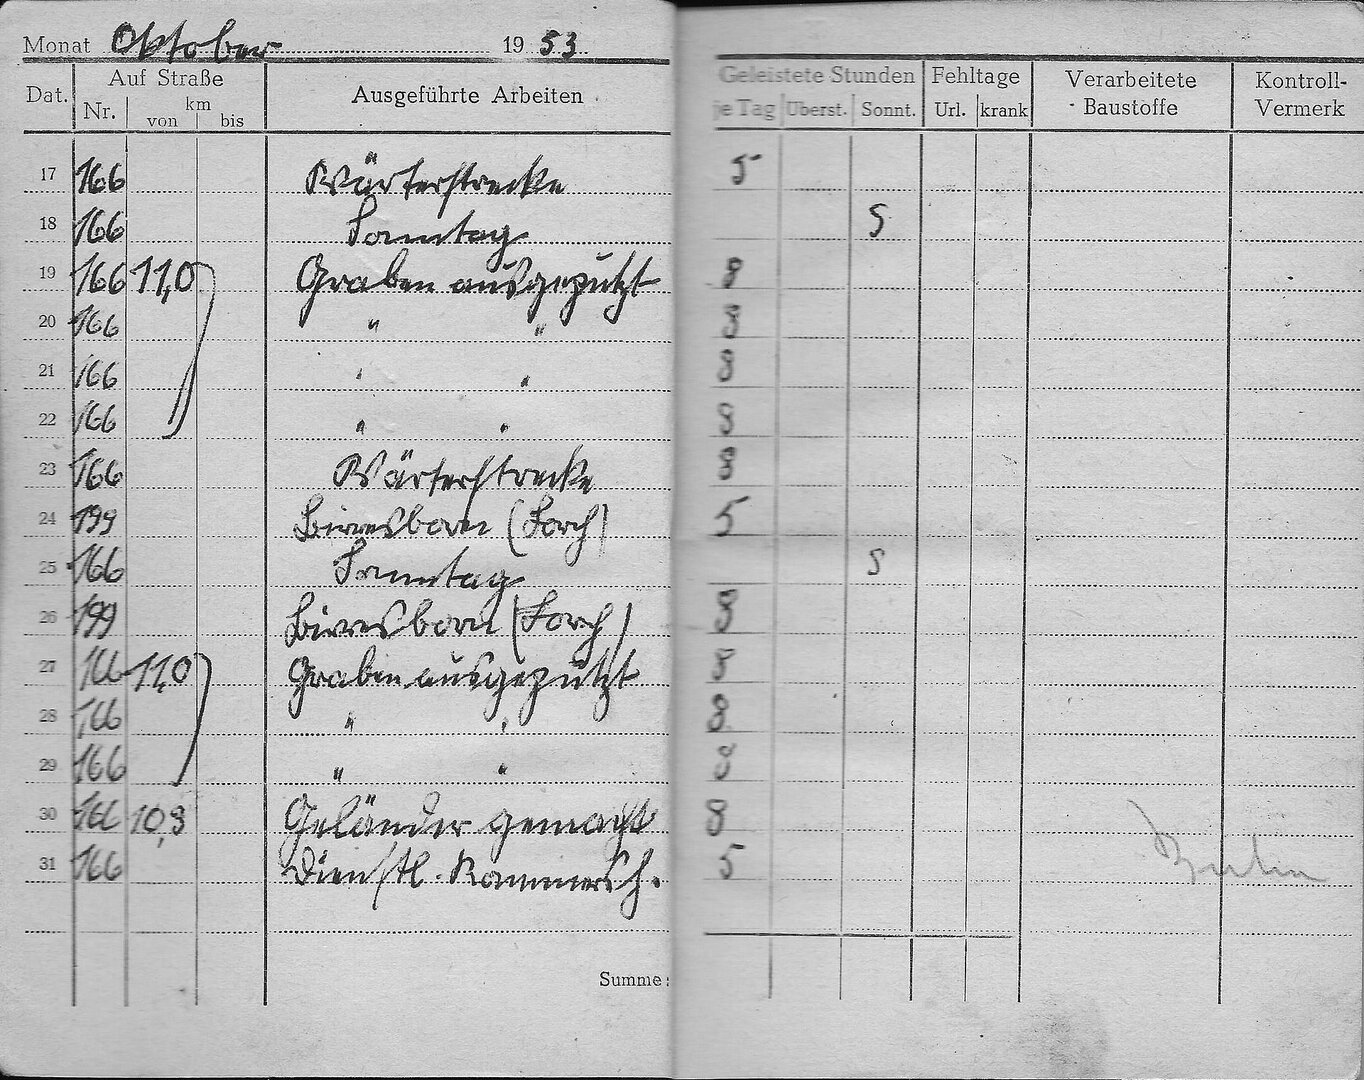 Monat Oktober 19 53
Dat. Auf Straße Ausgeführte Arbeiten Geleistete Stunden Fehltage Verarbeitete Baustoffe Kontroll-Vermerk
Nr. km von bis je Tag Überst. Sonnt. Url. krank
17 166 Wärterstrecke 5
18 166 Sonntag S
19 166 11,0 Graben ausgeputzt 8
20 166 " " 8
21 166 " " 8
22 166 " " 8
23 166 Wärterstrecke 8
24 199 Birresborn (Lorch) 5
25 166 Sonntag S
26 199 Birresborn (Lorch) 8
27 166 11,0 Graben ausgeputzt 8
28 166 " " 8
29 166 " " 8
30 166 10,8 Geländer gemacht 8
31 166 Dienstl. 5
Summe: